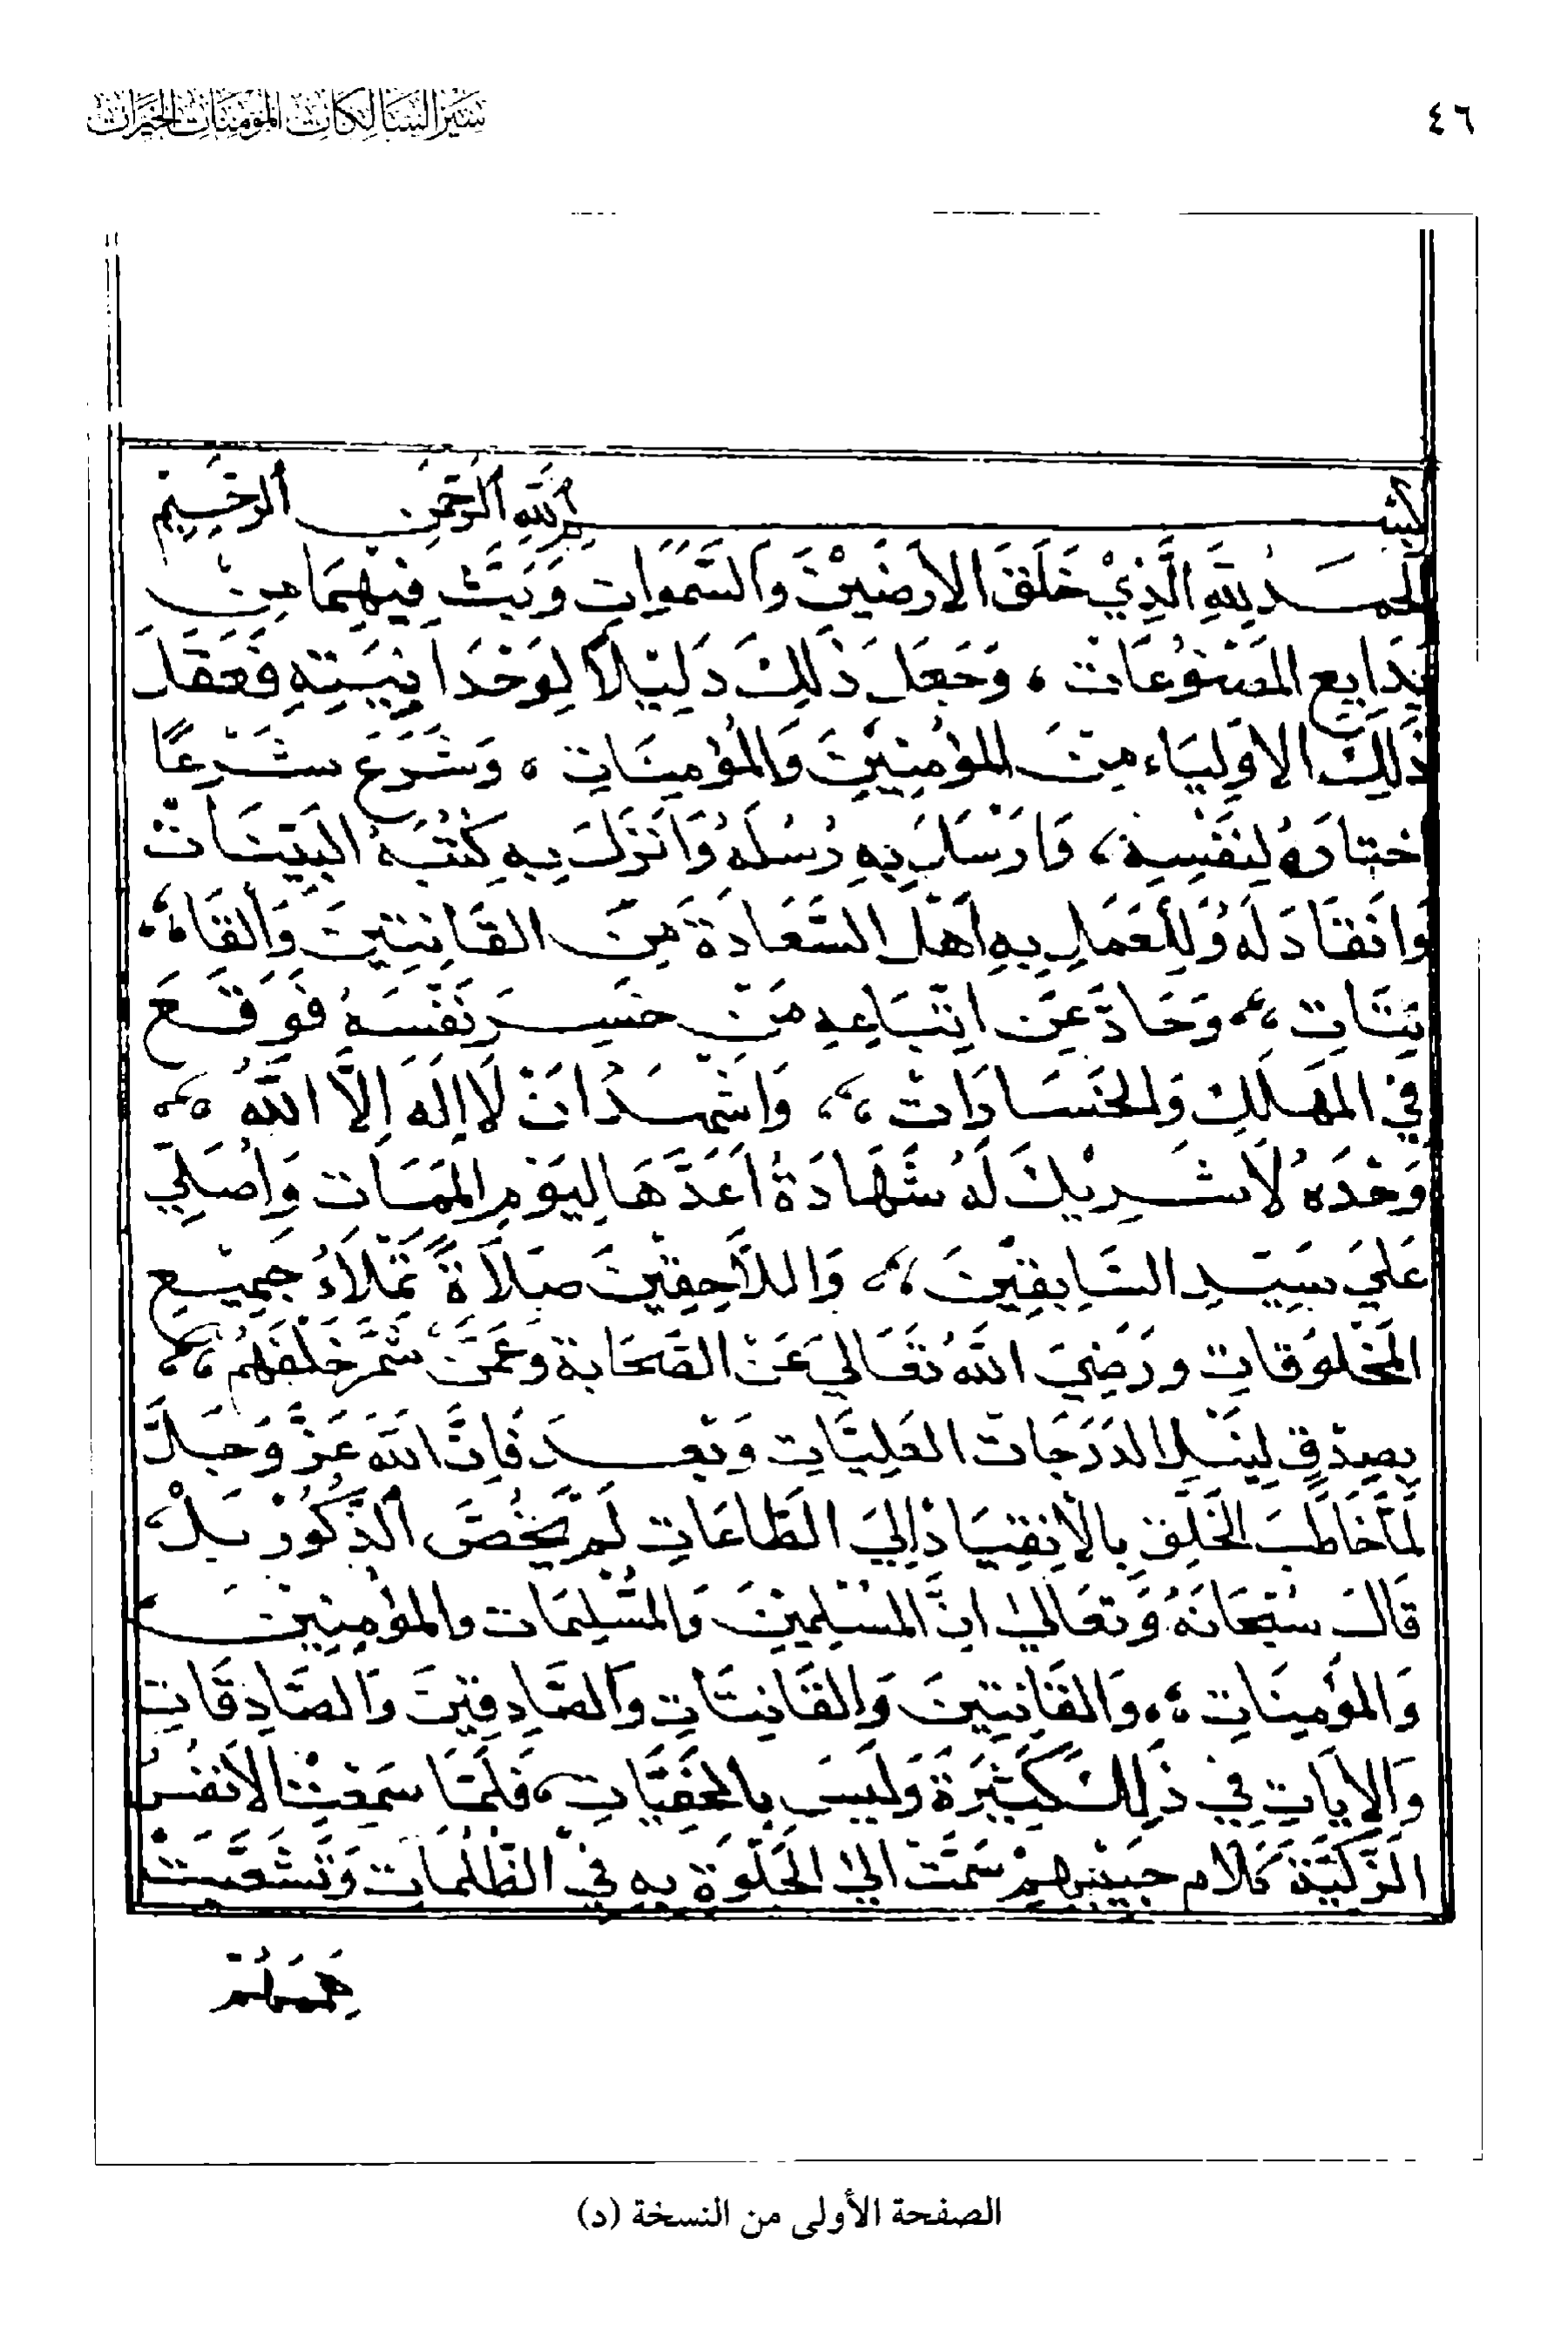 ٤٦
سير السالكات المؤمنات الخيرات
بسم الله الرحمن الرحيم
الحمد لله الَّذِيْ خَلَقَ الارَضيْنَ والسَّمَواتِ وَبَثَّ فِيْهِمَا مِنْ
بَدَايِع المَصْنُوعَاتْ ، وَجَعَلَ ذلِكَ دَلِيْلاً لِوَحْدَانِيَتِهِ فَعَقَلَ
ذَلِكَ الاوَلِيَاء مِنَ المؤمِنِيْنَ وَالمُؤمِنَاتِ ، وَشَرَعَ شَرْعًا
اختَارَهُ لِنَفْسِهِ ، وَارَسَلَ بِهِ رُسُلَهُ وَانَزَلَ بِهِ كُتُبَهُ البَيّنَاتْ
وانَقَادَ لَهُ وَلِلْعَمَلِ بِهِ اَهْلُ السَّعَادَةِ مِنَ القَانِتِينَ وَالقَا
نِتَاتِ ، وَحَادَ عَنِ اتّبَاعِهِ مَنْ خَسِرَ نَفْسَهُ فَوَقَعَ
فِي المَهَالِكِ وَالخَسَارَاتْ ، وَاشْهَدُ انْ لَا اِلَهَ اِلاَّ اللهُ ،
وَحْدَهُ لَا شَرِيْكَ لَهُ شَهَادَةً اَعَدَّهَا لِيَوْمِ المَمَات وَاُصَلِّي
عَلَي سَيّدِ السَّابِقِيْنَ ، وَاللاَحِقِيْنَ صَلَاَةً تَمْلَاَءُ جَمِيْعِ
المَخْلُوَقاتِ ورَضِيَ اللهُ تَعَالي عَنْ الصَّحَابة وَعَمَّنْ شَمَّر خَلْفَهُمْ ،
بِصِدْقٍ لِنَيْلِ الدَرَجَاتِ العَلِيَّاتِ وَبَعد فَاِنَّ اللهَ عَزَّ وَجَلَّ
لَمَّا خَاطَبَ الخَلِقَ بِالاِنِقِيَادِ اِلَي الطَّاعَاتِ لَمْ يَخُصَّ الذُّكُوْرْ بَلْ
قَالَ سُبْحَانَهُ وَتعَالي اِنَّ المُسْلِمِيْنَ وَالمُسْلِمَات والمؤمِنِيْنَ
وَالمؤُمِنَاتِ ، وَالقَانِتِيْنَ وَالقَانِتَاتِ وَالصَّادِقِيْنَ وَالصَّادِقَاتِ
وَالايَاتِ فِي ذَلِكَ كَثِيْرَة وَليَسَ بالخَفِيَّاتِ ، فَلَمَّا سَمَعَتْ الاَنفُسُ
الزَّكِيَّة كَلَام حَبِيْبِهِمْ سَمَتْ اِليَ الخَلْوَةِ بِهِ فِيْ الظُّلُمَاتِ وَتَشَعَّبَتْ
هِمَمُهُمْ
الصفحة الأولى من النسخة (د)